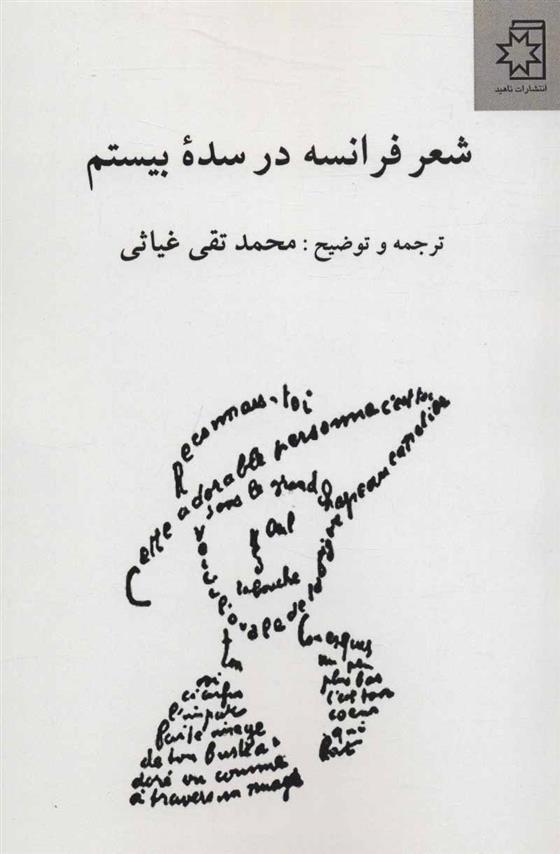 انتشارات ناهید
شعر فرانسه در سدهٔ بیستم
ترجمه و توضیح : محمد تقی غیاثی
Reconnais-toi
Cette adorable personne c'est toi
sous le grand chapeau canotier
Œil
la bouche
Voici l'ovale de ta figure
ton
ci
l'impar
faite image
de ton buste a
doré vu comme
à travers un nuage
un peu
plus bas
c'est ton
coeur
qui
bat